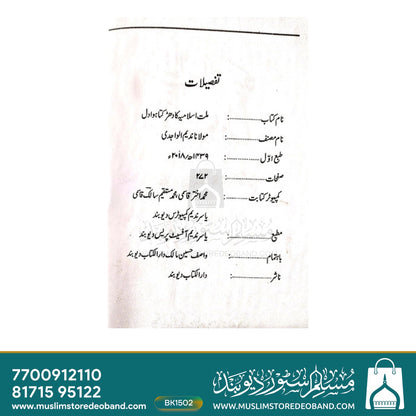 تفصیلات
نام کتاب ............: ملت اسلامیہ کا دھڑکتا ہوا دل
نام مصنف ............: مولانا ندیم الواجدی
طبع اوّل ............: ۱۴۳۹ھ/۲۰۱۸ء
صفحات ............: ۲۷۲
کمپیوٹر کتابت ............: محمد اختر قاسمی، محمد مستقیم سالک قاسمی
یاسر ندیم کمپیوٹرس دیوبند
مطبع ............: یاسر ندیم آفسیٹ پریس دیوبند
باہتمام ............: واصف حسین مالک دارالکتاب دیوبند
ناشر ............: دارالکتاب دیوبند
مسلم سٹور دیوبند
WWW.MUSLIMSTOREDEOBAND.COM
7700912110
81715 95122
www.muslimstoredeoband.com
BK1502
مسلم سٹور دیوبند
WWW.MUSLIMSTOREDEOBAND.COM